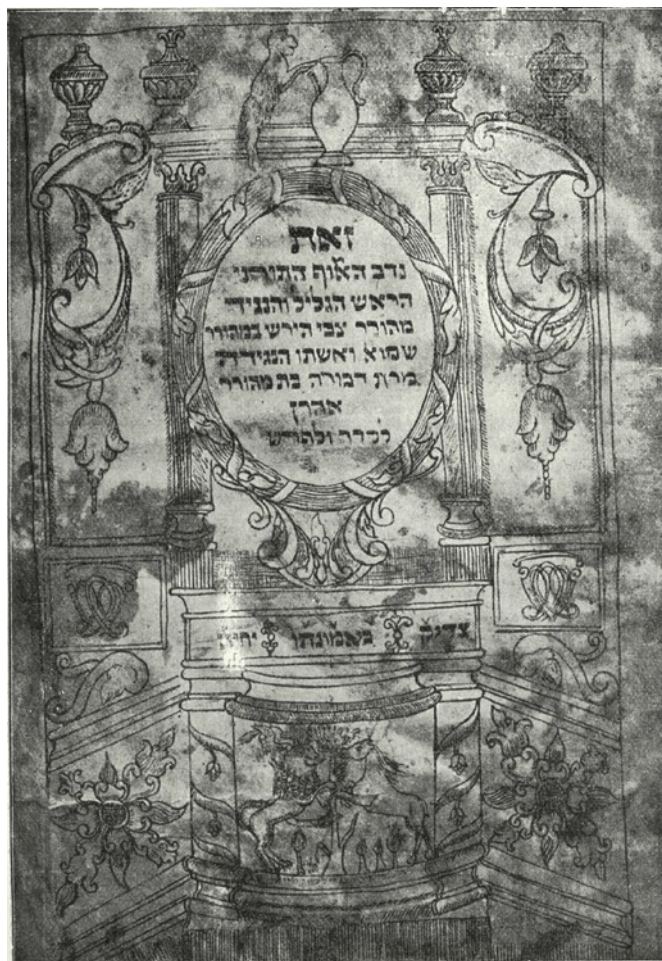 זאת
נדב האלוף התורני
הראש הגליל והנגיד
מהורר צבי הירש במהורר
שמוא ואשתו הנגידת
מרת דבורה בת מהורר
אהרן
לסדר ולחדש
צדיק באמונתו יחיה